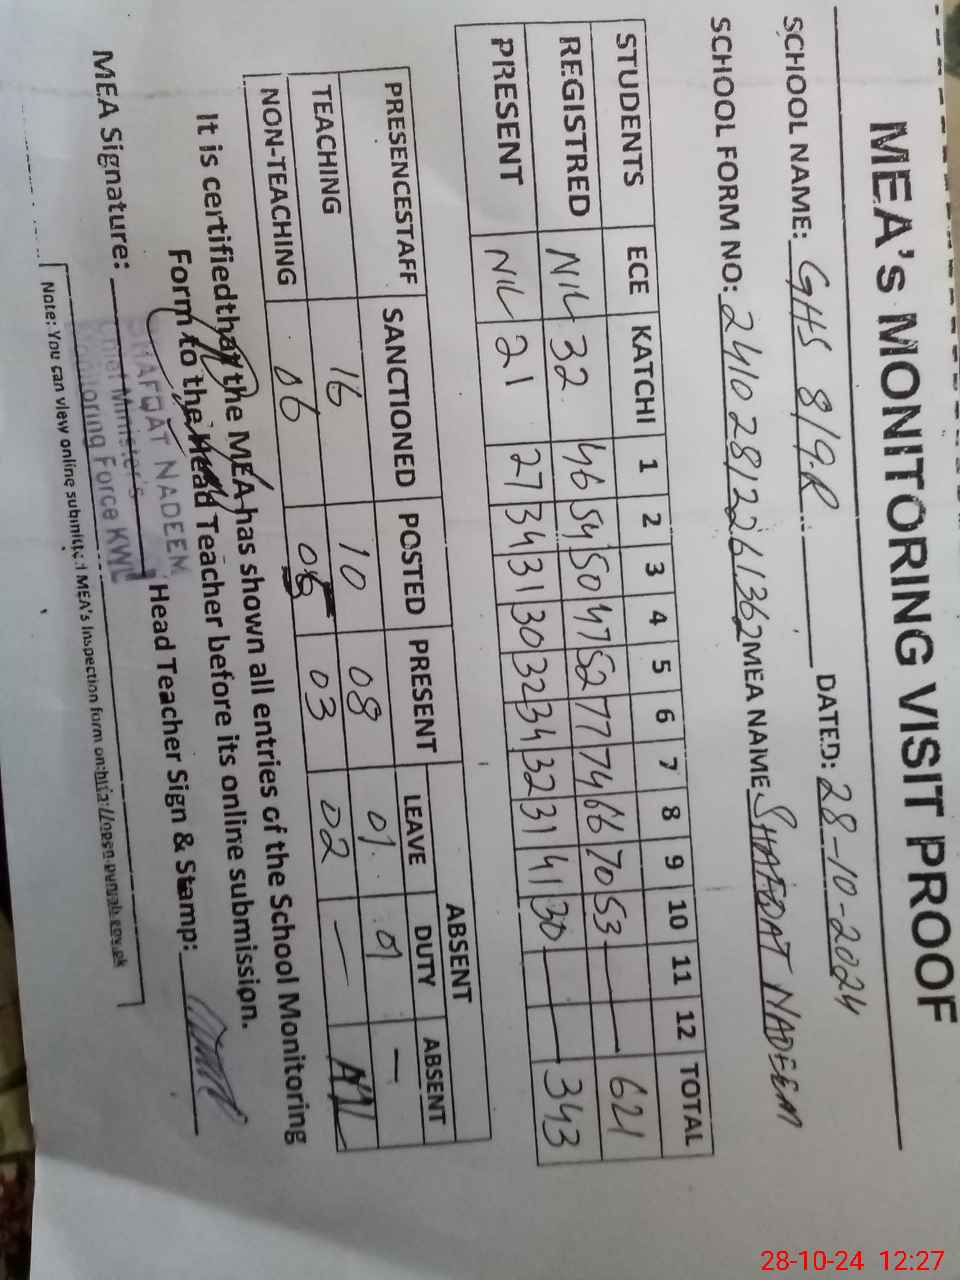 MEA's MONITORING VISIT PROOF
SCHOOL NAME: GHS 8/9.R DATED: 28-10-2024
SCHOOL FORM NO: 24102812261362 MEA NAME SHAFQAT NADEEM
STUDENTS ECE KATCHI 1 2 3 4 5 6 7 8 9 10 11 12 TOTAL
REGISTRED NIL 32 46 54 50 47 52 77 74 66 70 53 — 621
PRESENT NIL 21 27 34 31 30 32 34 32 31 41 30 — 343
PRESENCESTAFF SANCTIONED POSTED PRESENT ABSENT
LEAVE DUTY ABSENT
TEACHING 16 10 08 01 01 —
NON-TEACHING 06 05 03 02 — NIL
It is certifiedthat the MEA has shown all entries of the School Monitoring
Form to the Head Teacher before its online submission.
MEA Signature: Head Teacher Sign & Stamp:
SHAFQAT NADEEM
Chief Minister's
Monitoring Force KWL
Note: You can view online submitted MEA's Inspection form on:http://open.punjab.gov.pk
28-10-24 12:27